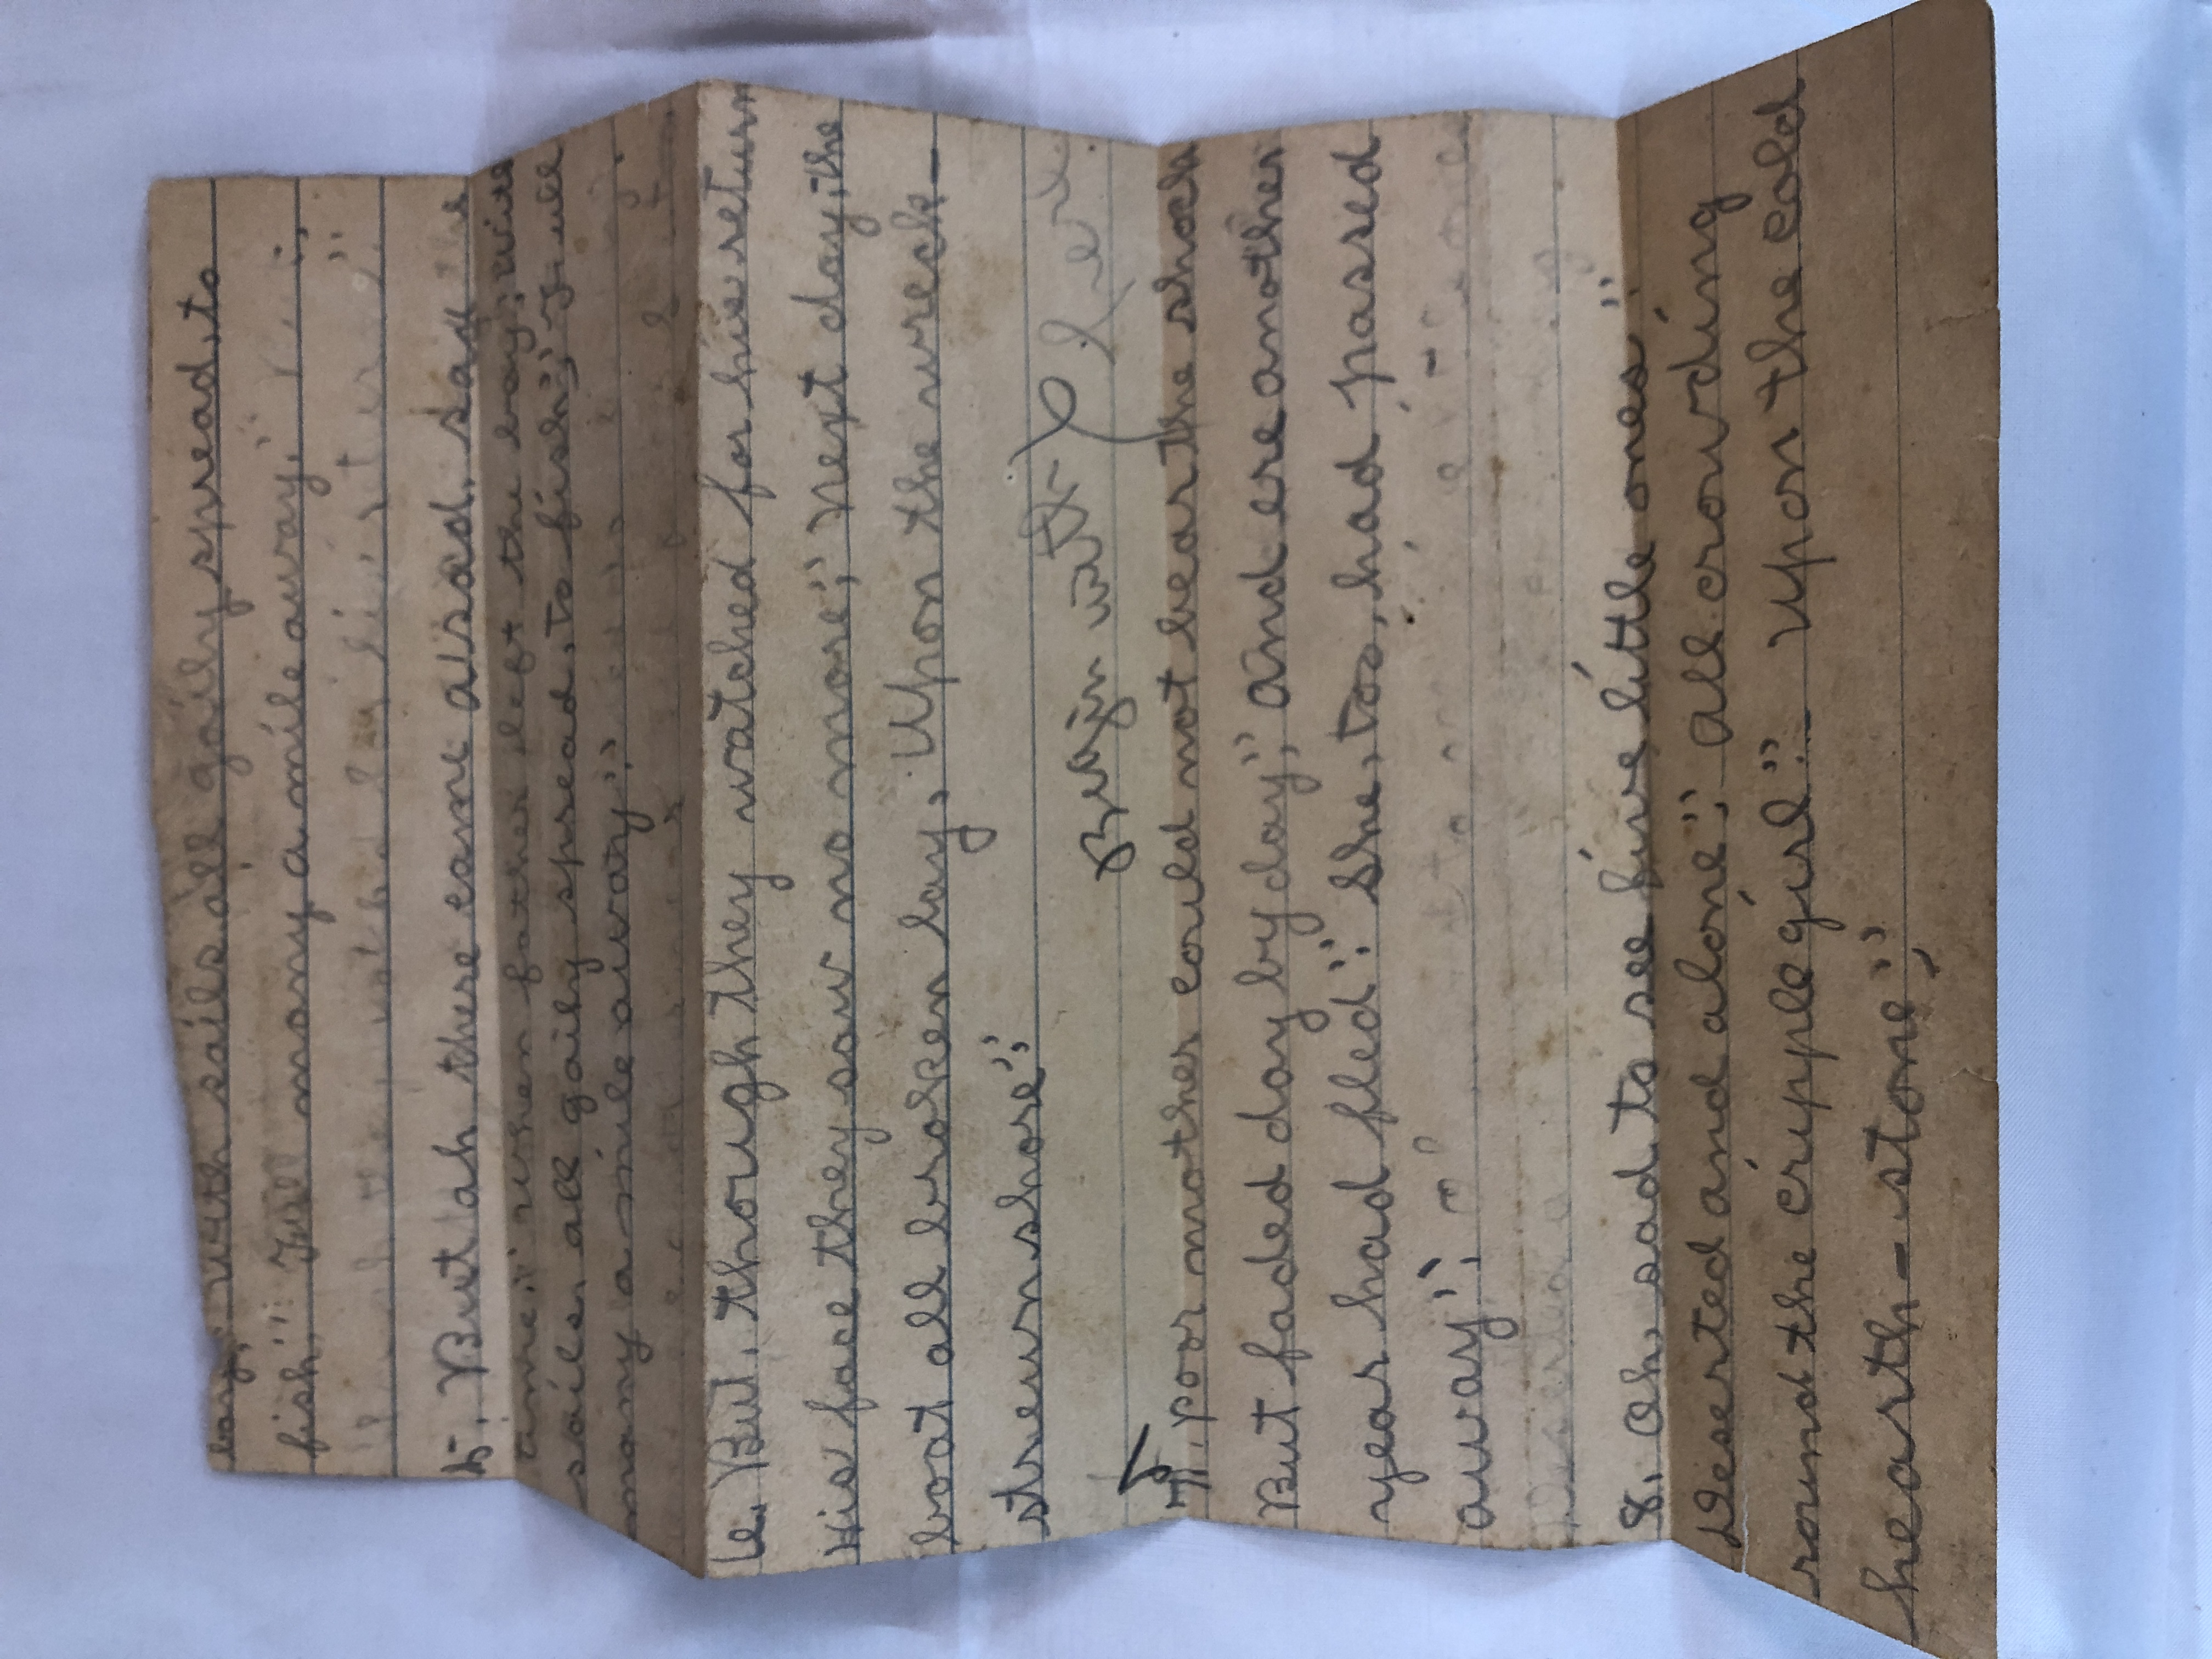 bay;" with sails all gaily spread, to
fish;" Full many a mile away,"
5. But ah there came a sad, sad
time," When father left the bay; with
sails, all gaily spread, to fish;" Full
many a mile away;"
6. But, though they watched for his return
His face they saw no more;" Next day, the
boat all broken lay, Upon the wreck-
strewn shore";
Begin with here
7. poor mother could not bear the shock
But faded day by day;" And ere another
year had fled": She, too, had passed
away";
Deserted a
8. Oh, sad, to see five little ones"
Deserted and alone"; All crowding
round the cripple girl": Upon the cold
hearth-stone";